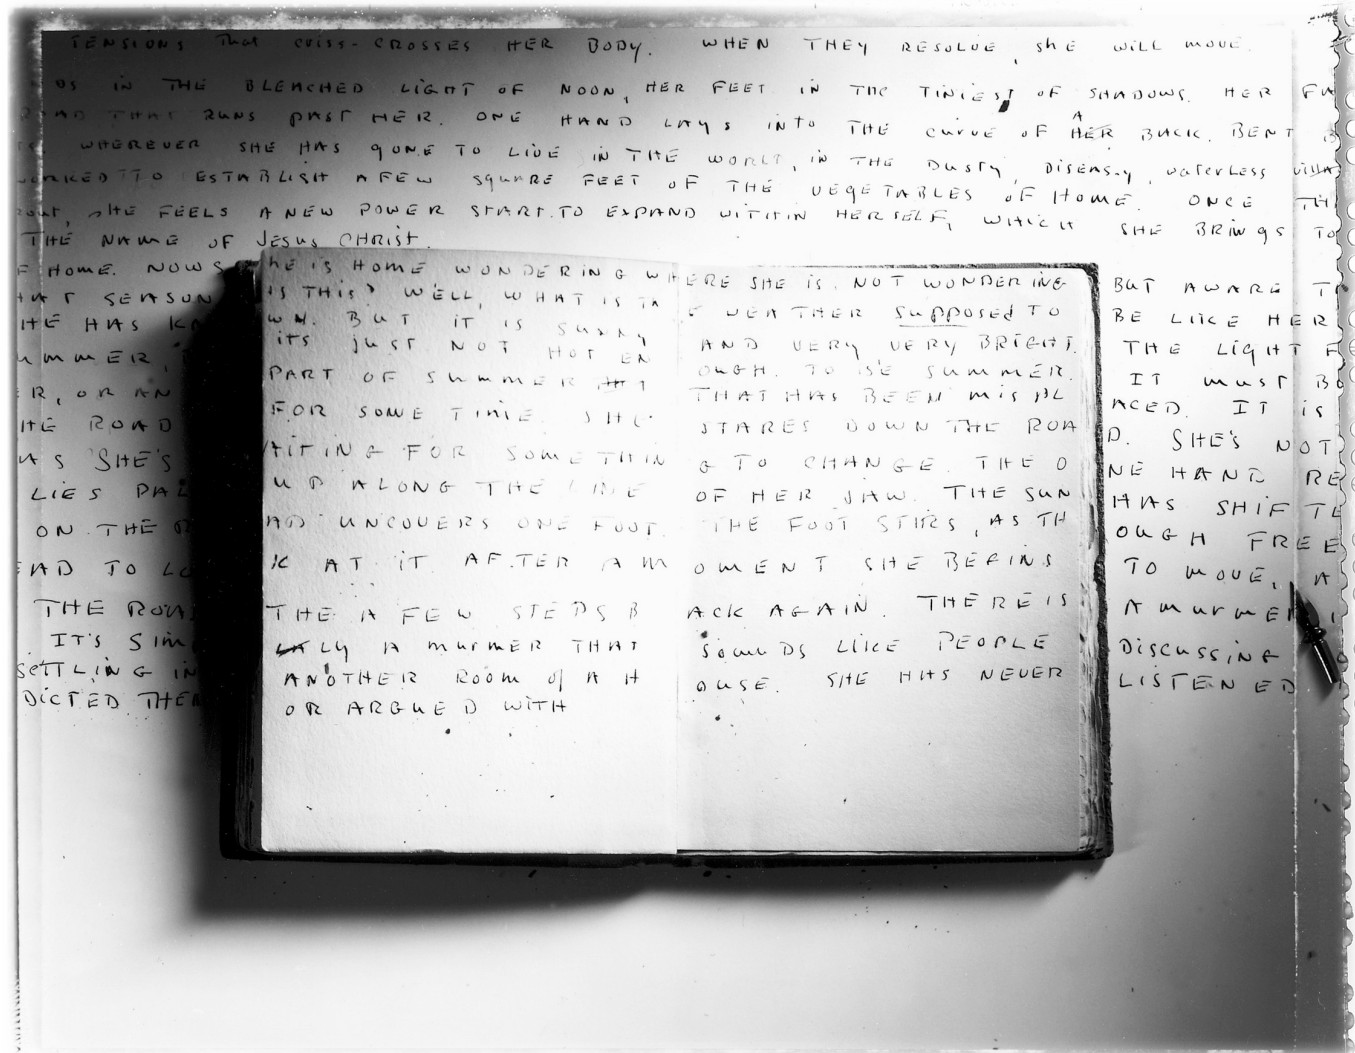 TENSIONS That criss-CROSSES HER BODY. WHEN THEY RESOLVE, she WILL MOVE.
DS IN THE BLEACHED LIGHT OF NOON, HER FEET IN THE TINIEST OF SHADOWS. HER FA
ROAD THAT RUNS PAST HER. ONE HAND LAYS INTO THE CURVE OF A HER BACK. BENT B
WHEREVER SHE HAS GONE TO LIVE IN THE WORLD, IN THE DUSTY, DISEASY, WATERLESS VILLA
WORKED TO ESTABLISH A FEW SQUARE FEET OF THE VEGETABLES OF HOME. ONCE TH
OUT, SHE FEELS A NEW POWER START TO EXPAND WITHIN HERSELF, WHICH SHE BRINGS TO
THE NAME OF JESUS CHRIST.
F HOME. NOW S HE IS HOME WONDERING WHERE SHE IS. NOT WONDERING BUT AWARE T
HAT SEASON IS THIS? WELL, WHAT IS TH E WEATHER SUPPOSED TO BE LIKE HER
HE HAS KN WN. BUT IT IS SUNNY AND VERY, VERY BRIGHT. THE LIGHT F
UMMER, ITS JUST NOT HOT EN OUGH. TO BE SUMMER. IT MUST BO
ER, OR AN PART OF SUMMER THAT HAS BEEN MISPL ACED. IT IS
HE ROAD FOR SOME TIME. SHE STARES DOWN THE ROA D. SHE'S NOT
AS SHE'S AITING FOR SOMETHIN G TO CHANGE. THE O NE HAND RE
LIES PAL UP ALONG THE LINE OF HER JAW. THE SUN HAS SHIFTE
ON THE R AD UNCOVERS ONE FOOT. THE FOOT STIRS, AS TH OUGH FREE
EAD TO LO K AT IT. AFTER A M OMENT SHE BEGINS TO MOVE, A
THE ROAD THE A FEW STEPS B ACK AGAIN. THERE IS A MURMER I
IT'S SIM LY A MURMER THAT SOUNDS LIKE PEOPLE DISCUSSING
SETTLING IN ANOTHER ROOM OF A H OUSE. SHE HAS NEVER LISTENED
DICTED THEM OR ARGUED WITH